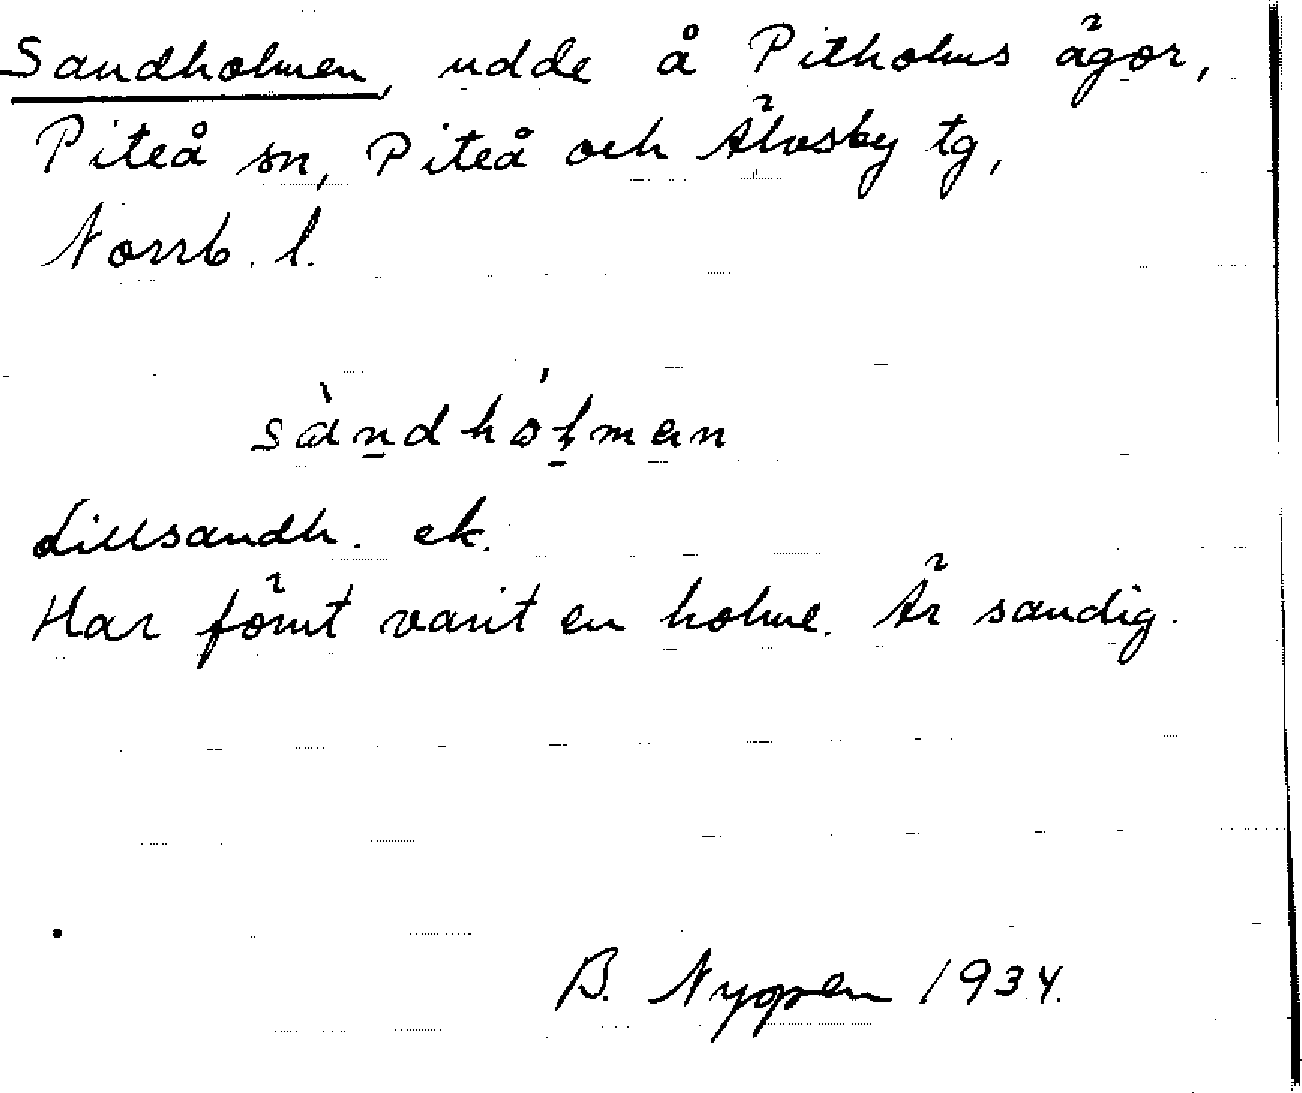 Sandholmen, udde å Pitholms ägor,
Piteå sn, Piteå och Älvsby tg,
Norrb. l.
sàndhólmen
Lillsandh. ek.
Har förut varit en holme. Är sandig.
B. Nygren 1934.